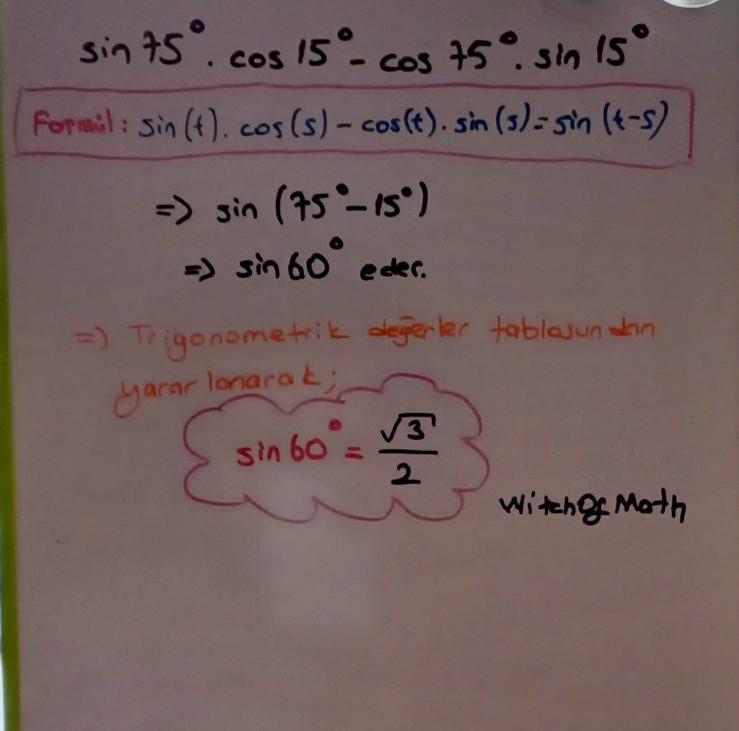 sin 75°. cos 15° - cos 75°. sin 15°
Formül: sin(t). cos(s) - cos(t). sin(s) = sin (t-s)
=> sin (75° - 15°)
=> sin 60° eder.
=) Trigonometrik değerler tablosundan
yararlanarak;
sin 60° = √3/2
WitchOfMath